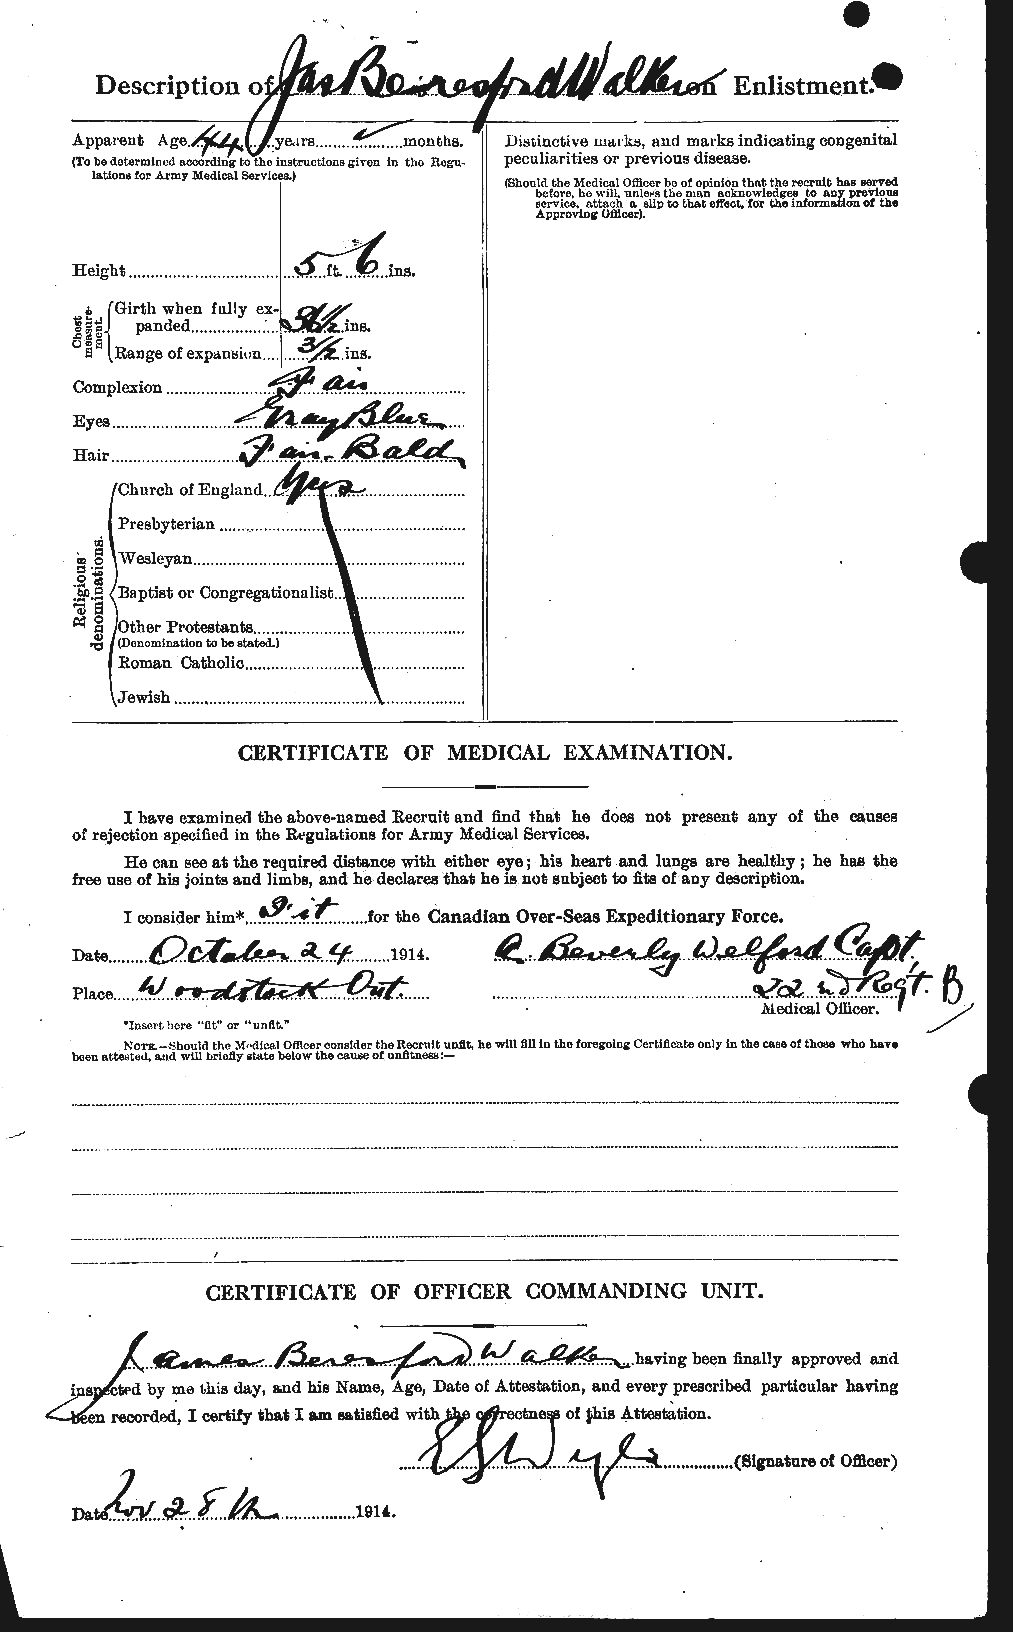 Description of Jas Beresford Walker on Enlistment.
Apparent Age 44 years months.
(To be determined according to the instructions given in the Regu-
lations for Army Medical Services.)
Height 5 ft. 6 ins.
Chest measure-ment.
Girth when fully ex-
panded 36½ ins.
Range of expansion 3½ ins.
Complexion Fair
Eyes Gray Blue
Hair Fair-Bald
Religious denominations.
Church of England Yes
Presbyterian
Wesleyan
Baptist or Congregationalist
Other Protestants
(Denomination to be stated.)
Roman Catholic
Jewish
Distinctive marks, and marks indicating congenital
peculiarities or previous disease.
(Should the Medical Officer be of opinion that the recruit has served
before, he will, unless the man acknowledges to any previous
service, attach a slip to that effect, for the information of the
Approving Officer).
CERTIFICATE OF MEDICAL EXAMINATION.
I have examined the above-named Recruit and find that he does not present any of the causes
of rejection specified in the Regulations for Army Medical Services.
He can see at the required distance with either eye; his heart and lungs are healthy; he has the
free use of his joints and limbs, and he declares that he is not subject to fits of any description.
I consider him* Fit for the Canadian Over-Seas Expeditionary Force.
Date October 24 1914. A. Beverly Welford Capt,
Place Woodstock Ont. 22nd Regt. B
Medical Officer.
*Insert here "fit" or "unfit."
NOTE.—Should the Medical Officer consider the Recruit unfit, he will fill in the foregoing Certificate only in the case of those who have
been attested, and will briefly state below the cause of unfitness:—
CERTIFICATE OF OFFICER COMMANDING UNIT.
James Beresford Walker having been finally approved and
inspected by me this day, and his Name, Age, Date of Attestation, and every prescribed particular having
been recorded, I certify that I am satisfied with the correctness of this Attestation.
(Signature of Officer)
Date Nov 28th 1914.